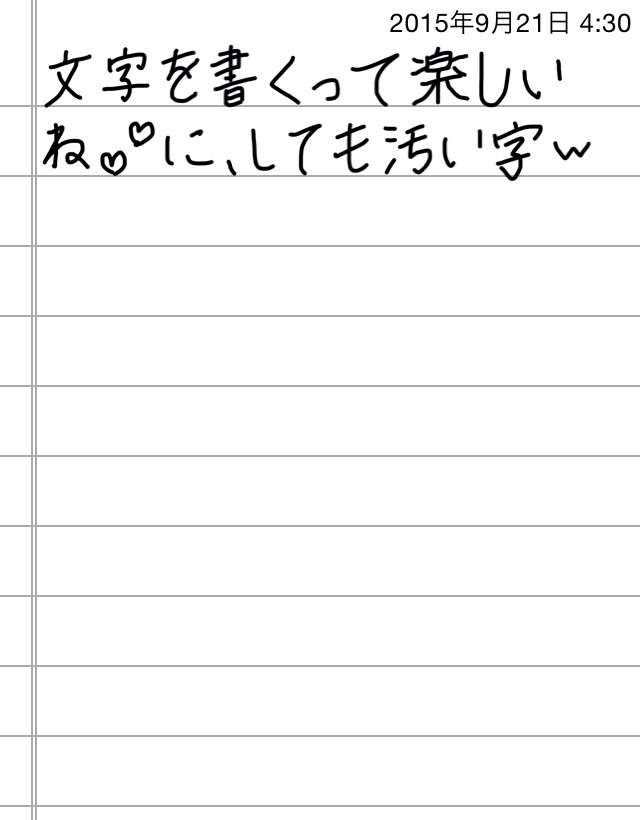 2015年9月21日 4:30
文字を書くって楽しい
ね♡♡に、しても汚い字w